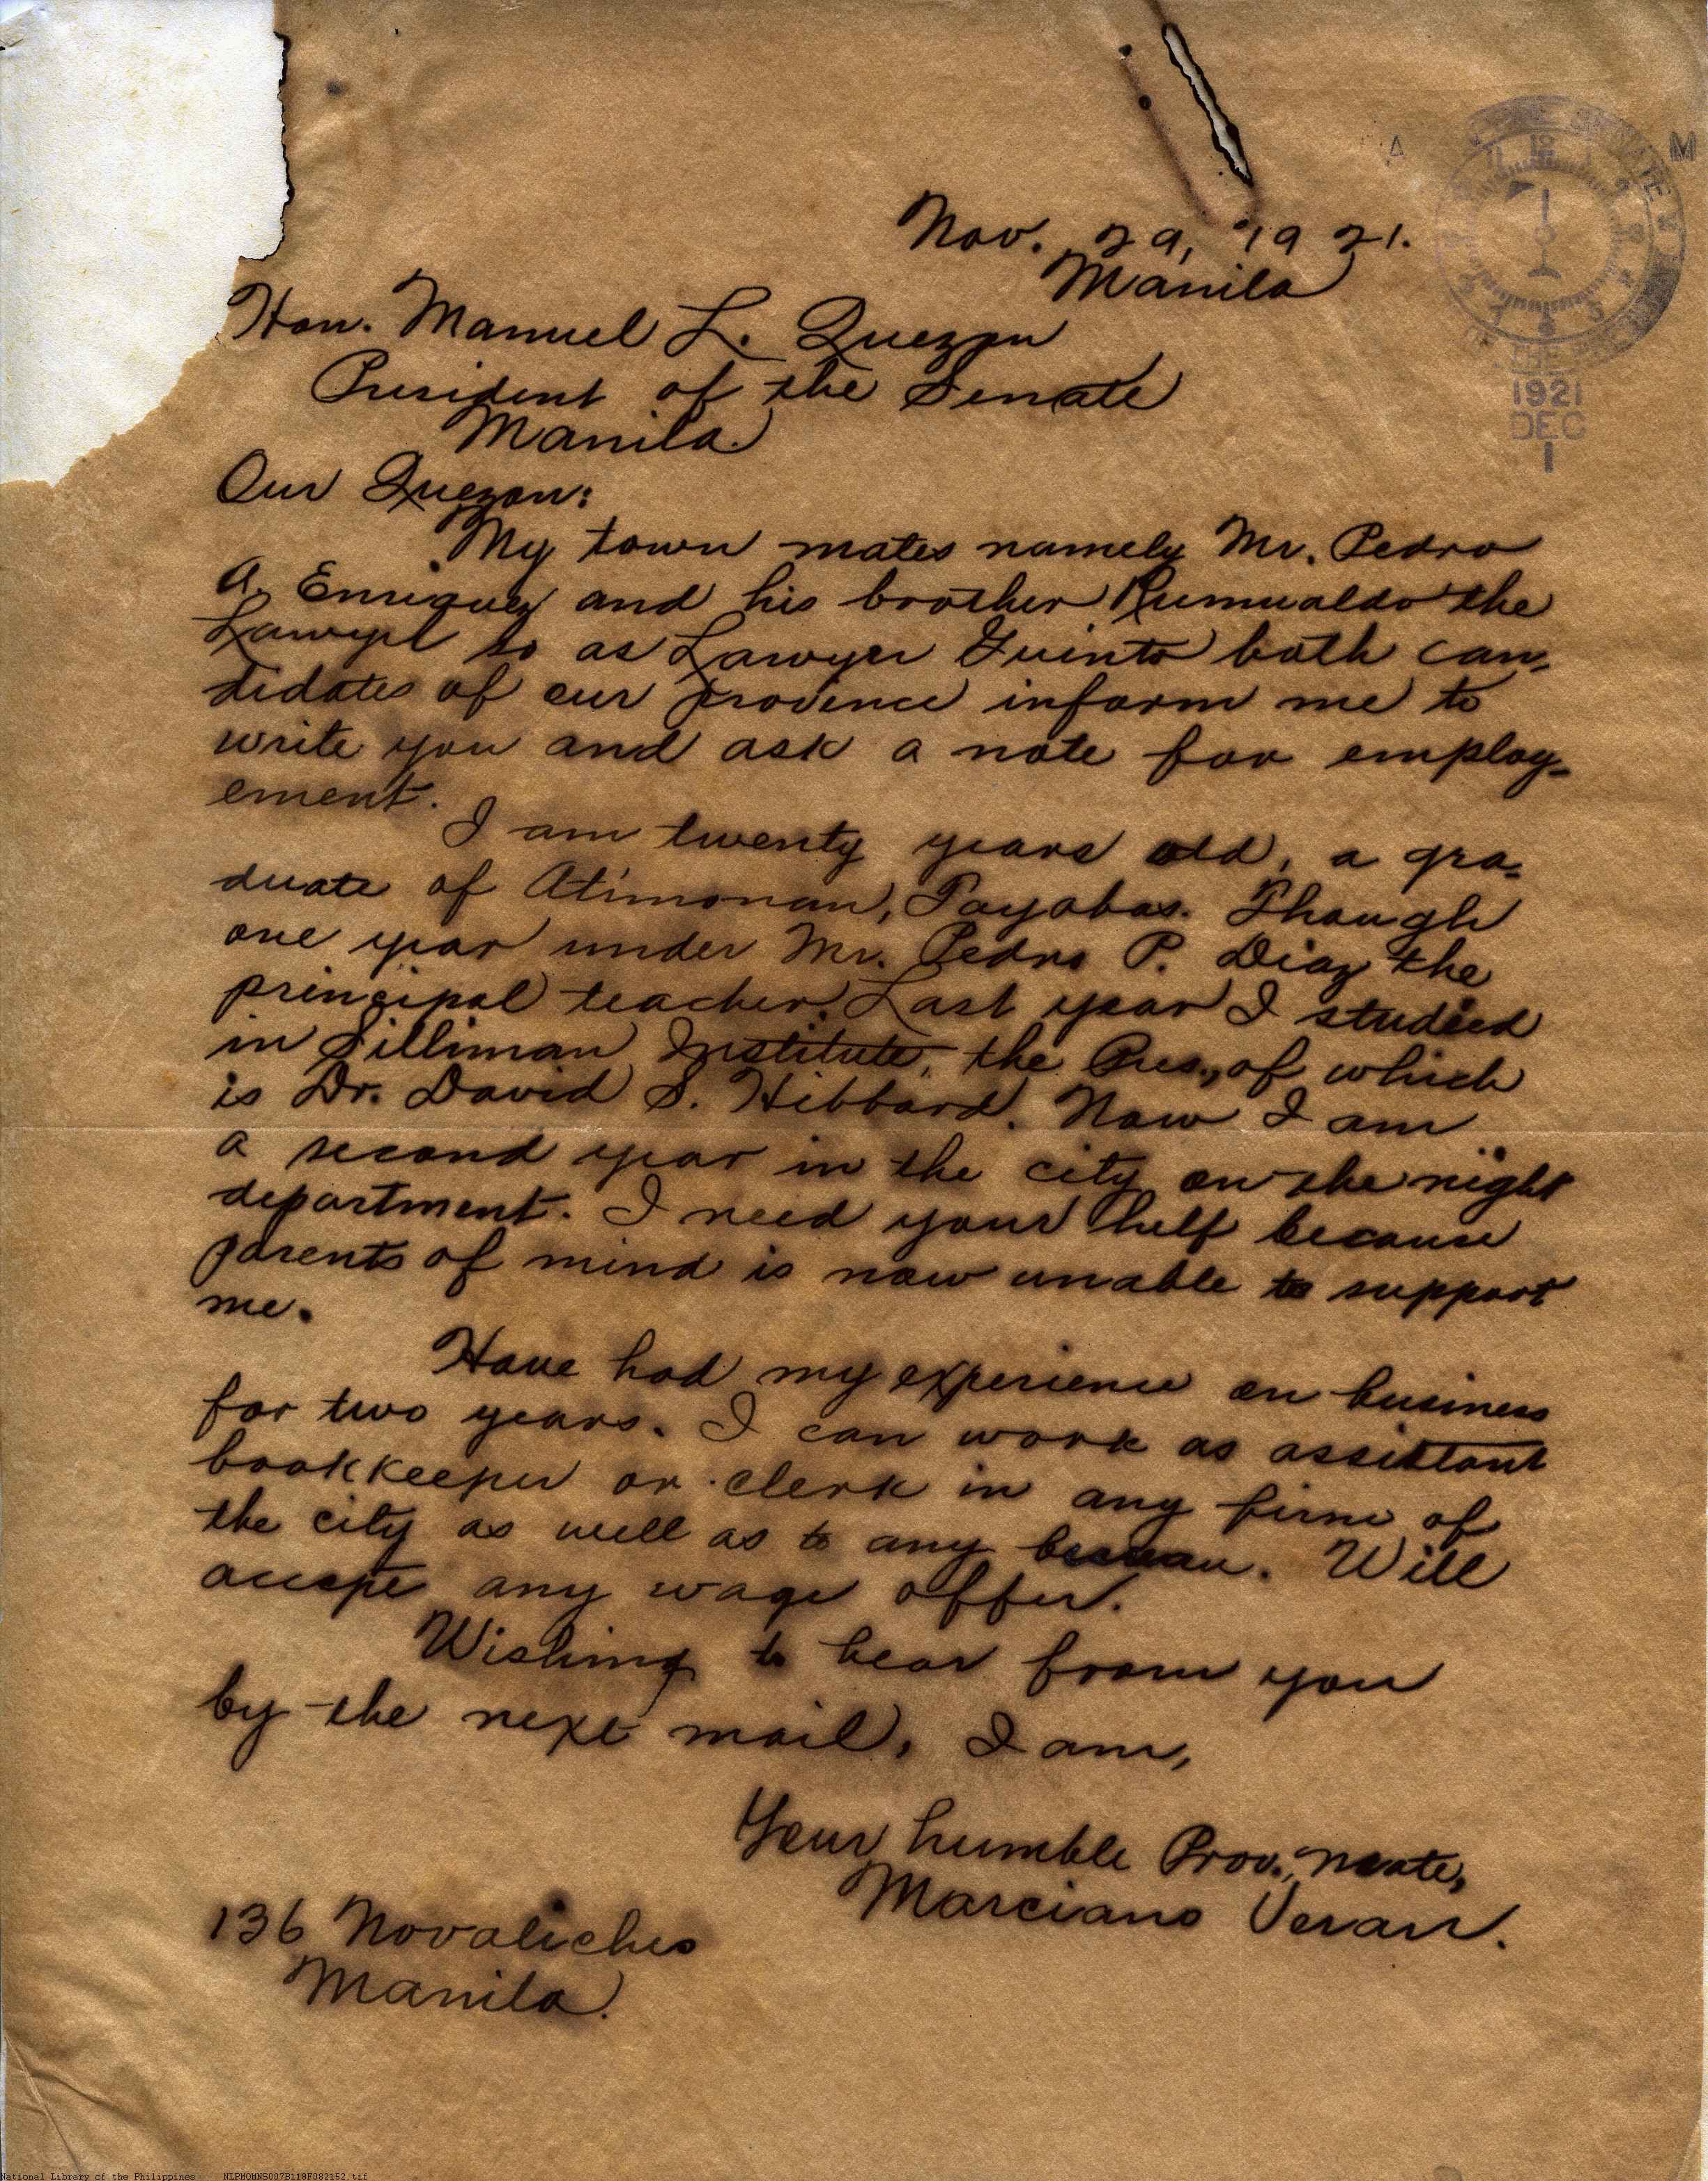 Nov. 29, 1921.
Manila
Hon. Manuel L. Quezon
President of the Senate
Manila.
Our Quezon:
My town mates namely Mr. Pedro
A. Enriquez and his brother Rumualdo the
Lawyer so as Lawyer Guinto both can-
didates of our provence inform me to
write you and ask a note for employ-
ement.
I am twenty years old, a gra-
duate of Atimonan, Tayabas. Though
one year under Mr. Pedro P. Diaz the
principal teacher. Last year I studied
in Silliman Institute, the Pres., of which
is Dr. David S. Hibbard. Now I am
a second year in the city on the night
department. I need your help because
parents of mind is now unable to support
me.
Have had my experience on business
for two years. I can work as assistant
bookkeeper or clerk in any firm of
the city as well as to any bureau. Will
accepe any wage offer.
Wishing to hear from you
by the next mail, I am,
Your humble Prov. mate,
Marciano Veran.
136 Novaliches
Manila.
A M
SENATE
OF THE
1921
DEC
1
National Library of the Philippines NLPMQMNS007B118F082152.tif